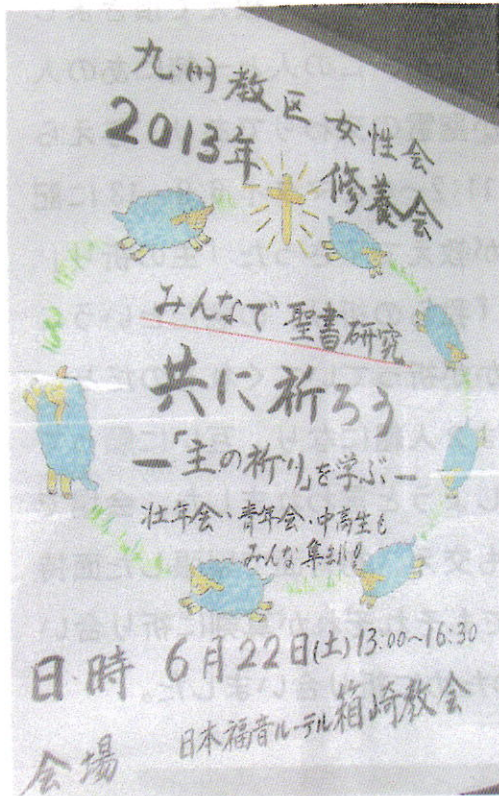 九州教区 女性会
2013年 修養会
みんなで聖書研究
共に祈ろう
―「主の祈り」を学ぶ―
壮年会・青年会・中高生も
みんな集まれ!!
日時 6月22日(土)13:00~16:30
会場 日本福音ルーテル箱崎教会